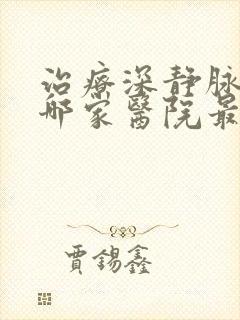 治療深靜脉
哪家醫院最
賈錫鑫